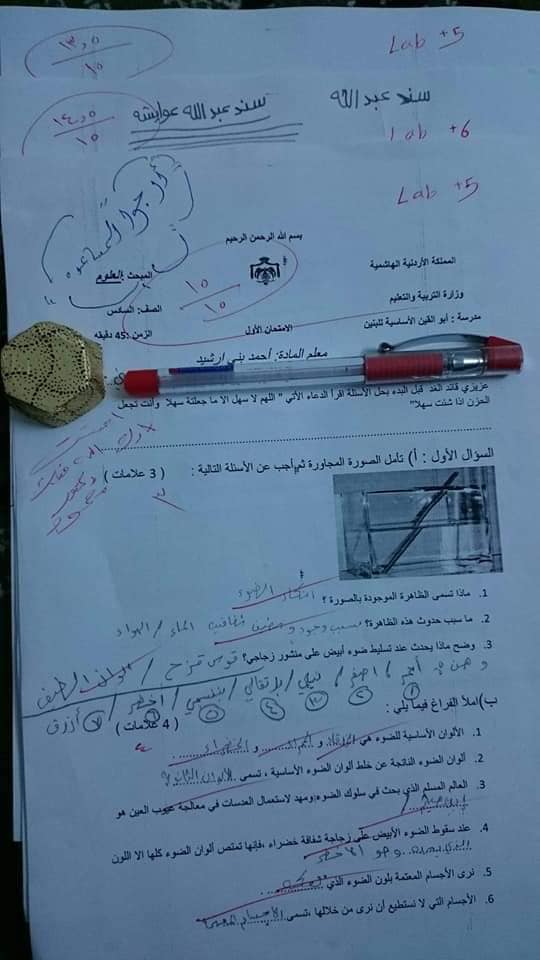 ١٣,٥
١٥
Lab +5
سند عبدالله
سند عبدالله عوايشه
١٤,٥
١٥
Lab +6
Lab +5
بسم الله الرحمن الرحيم
المملكة الأردنية الهاشمية
المبحث :العلوم
١٥
١٥
وزارة التربية والتعليم
الصف: السادس
مدرسة : أبو القين الأساسية للبنين
الامتحان الأول
الزمن :45 دقيقه
معلم المادة: أحمد بني ارشيد
عزيزي قائد الغد قبل البدء بحل الأسئلة اقرأ الدعاء الأتي " اللهم لا سهل الا ما جعلتة سهلا وأنت تجعل
الحزن اذا شئت سهلا"
السؤال الأول : أ) تأمل الصورة المجاورة ثم أجب عن الأسئلة التالية : ( 3 علامات )
٣
1. ماذا تسمى الظاهرة الموجودة بالصورة ؟ انكسار الضوء
2. ما سبب حدوث هذه الظاهرة؟ بسبب وجود وسطين شفافين الماء / الهواء
3. وضح ماذا يحدث عند تسليط ضوء أبيض على منشور زجاجي؟ قوس قزح / ألوان الطيف
وهن : أحمر / اصفر / نيلي / برتقالي / بنفسجي / اخضر / أزرق
ب)املأ الفراغ فيما يلي : ( 4 علامات )
٤
1. الألوان الأساسية للضوء هي الزرقاء و الحمراء و الخضراء
2. ألوان الضوء الناتجة عن خلط ألوان الضوء الأساسية ، تسمى الألوان الثانوية
3. العالم المسلم الذي بحث في سلوك الضوء ومهد لاستعمال العدسات في معالجة عيوب العين هو
ابن هيثم
4. عند سقوط الضوء الأبيض على زجاجة شفافة خضراء ،فإنها تمتص ألوان الضوء كلها الا اللون
وهو الأخضر
5. نرى الأجسام المعتمة بلون الضوء الذي تعكسه
6. الأجسام التي لا نستطيع أن نرى من خلالها ،تسمى الأجسام المعتمة